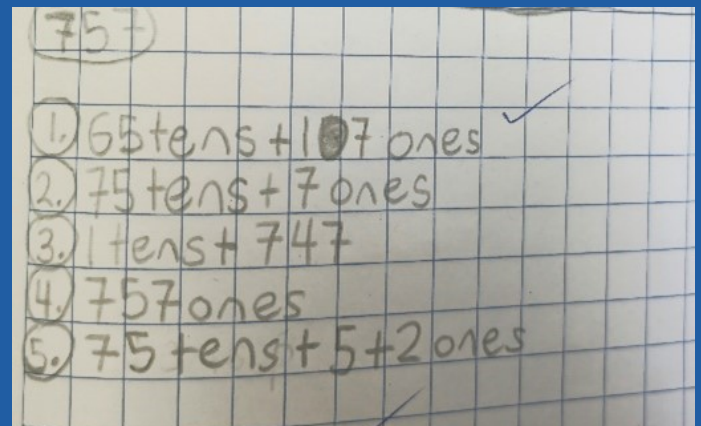 757
1. 65 tens + 107 ones
2. 75 tens + 7 ones
3. 1 tens + 747
4. 757 ones
5. 75 tens + 5 + 2 ones